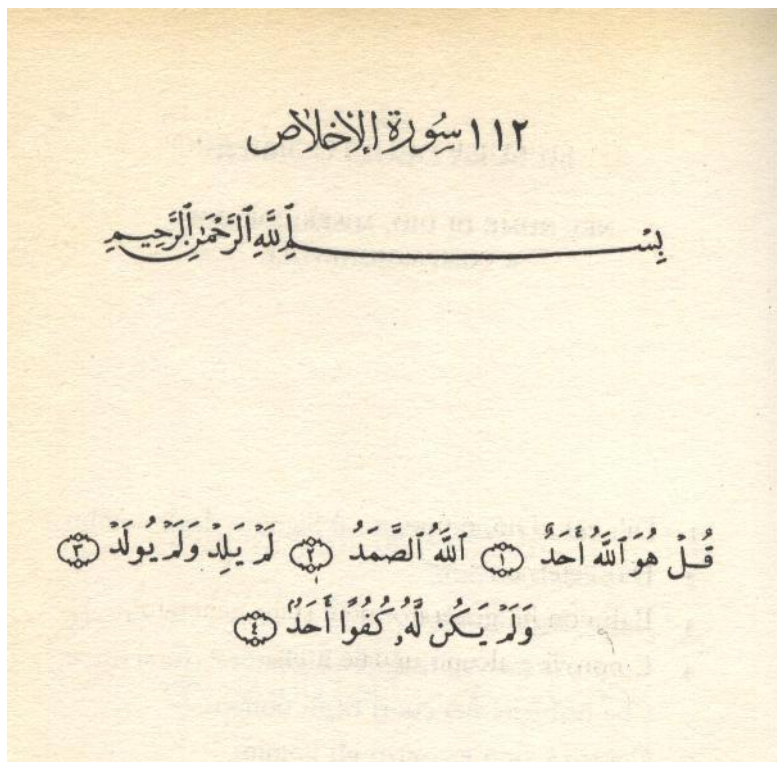 ١١٢ سُورَة الإخلاص
بِسْمِ ٱللَّهِ ٱلرَّحْمَٰنِ ٱلرَّحِيمِ
قُلْ هُوَ ٱللَّهُ أَحَدٌ ١ ٱللَّهُ ٱلصَّمَدُ ٢ لَمْ يَلِدْ وَلَمْ يُولَدْ ٣
وَلَمْ يَكُن لَّهُۥ كُفُوًا أَحَدٌۢ ٤